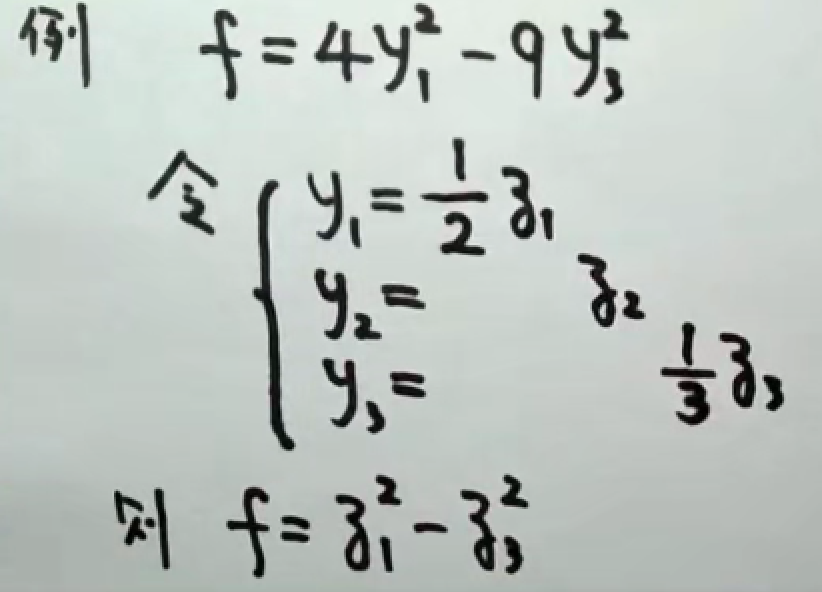 例 f = 4y₁² - 9y₃²
令 { y₁ = 1/2 z₁
y₂ = z₂
y₃ = 1/3 z₃
则 f = z₁² - z₃²